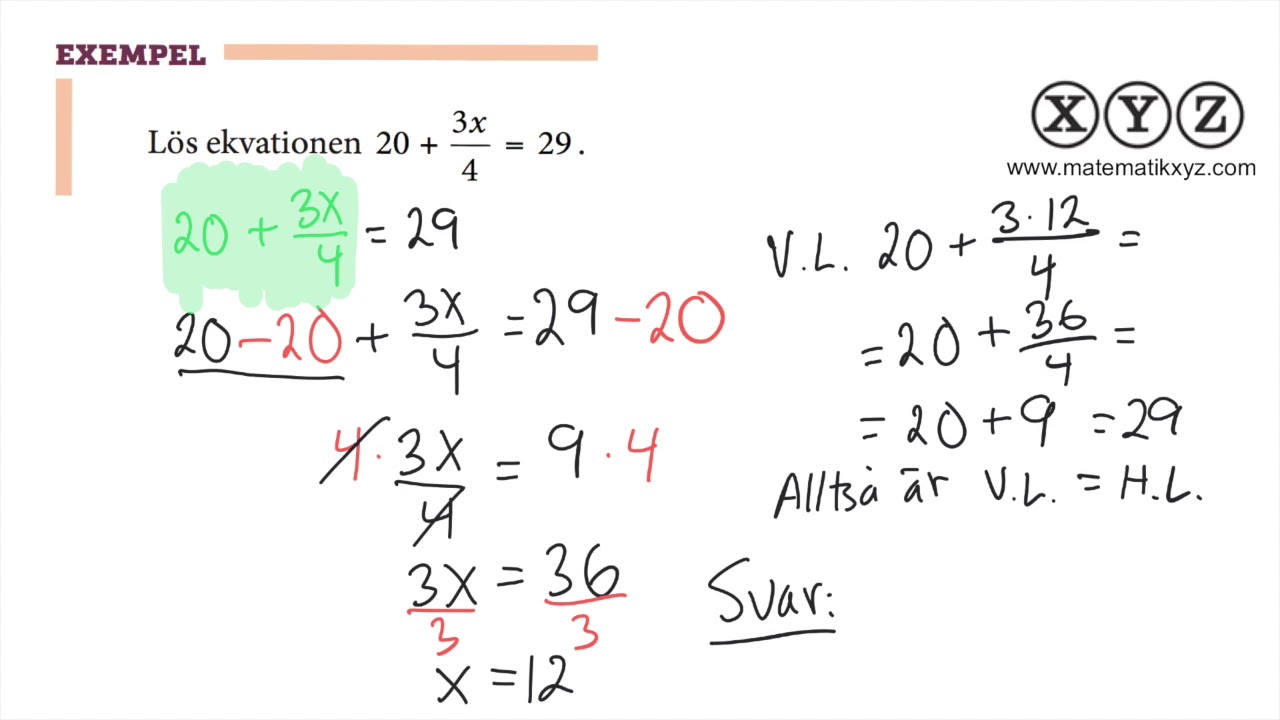 EXEMPEL
Lös ekvationen 20 + 3x/4 = 29.
20 + 3x/4 = 29
20 - 20 + 3x/4 = 29 - 20
4 · 3x/4 = 9 · 4
3x/3 = 36/3
x = 12
XYZ
www.matematikxyz.com
V.L. 20 + 3·12/4 =
= 20 + 36/4 =
= 20 + 9 = 29
Alltså är V.L. = H.L.
Svar: